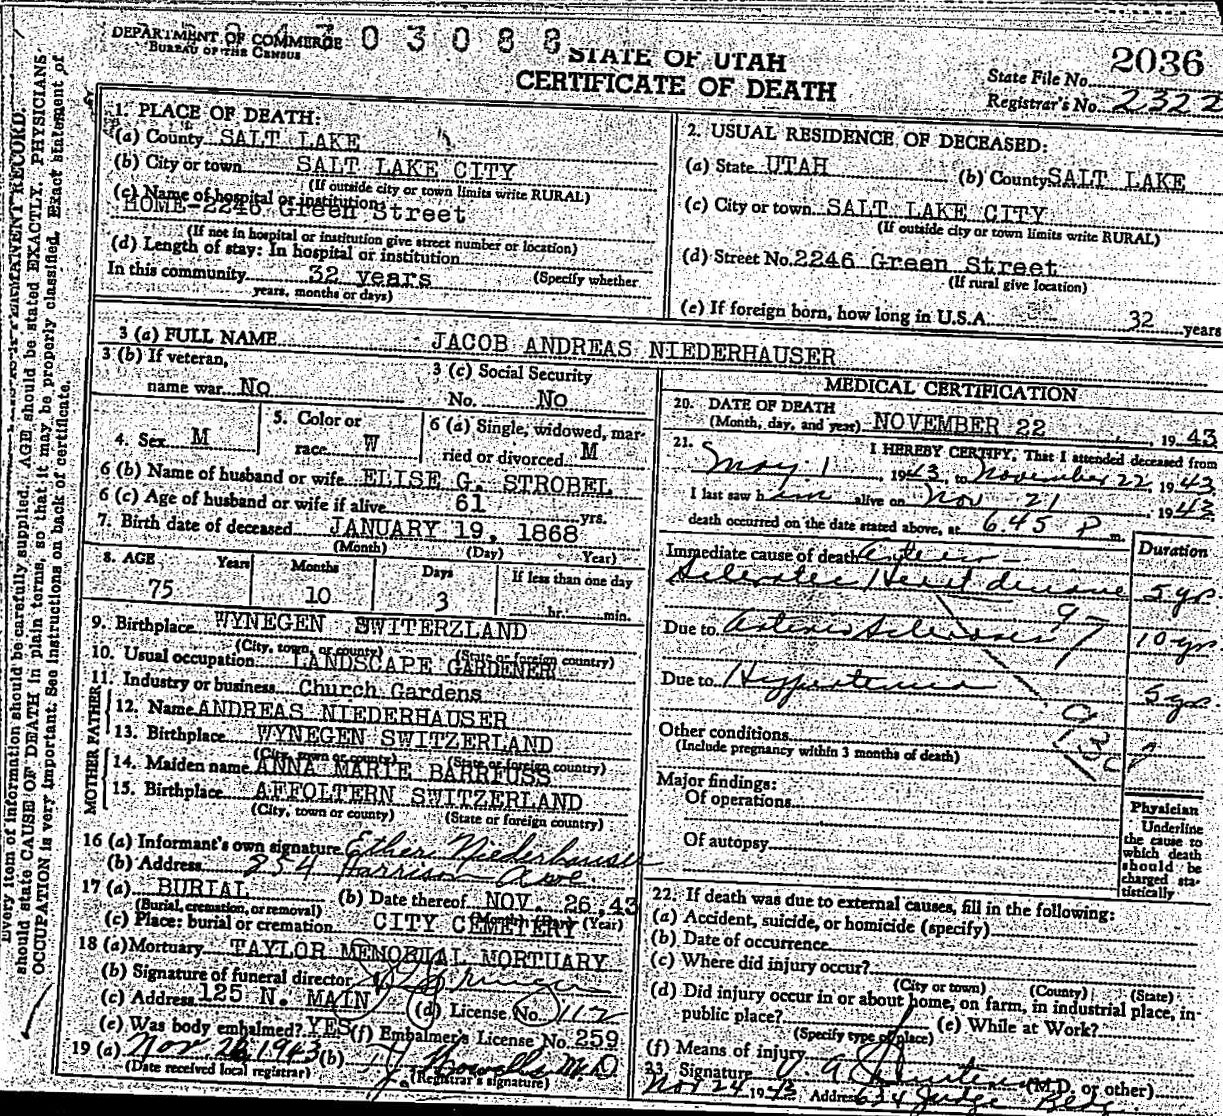 DEPARTMENT OF COMMERCE
BUREAU OF THE CENSUS
0 3 0 8 8
STATE OF UTAH
CERTIFICATE OF DEATH
State File No. 2036
Registrar's No. 2322
Every item of information should be carefully supplied. AGE should be stated EXACTLY. PHYSICIANS
should state CAUSE OF DEATH in plain terms, so that it may be properly classified. Exact statement of
OCCUPATION is very important. See instructions on back of certificate.
1. PLACE OF DEATH:
(a) County SALT LAKE
(b) City or town SALT LAKE CITY
(If outside city or town limits write RURAL)
(c) Name of hospital or institution:
HOME-2246 Green Street
(If not in hospital or institution give street number or location)
(d) Length of stay: In hospital or institution
(Specify whether
In this community 32 years
years, months or days)
2. USUAL RESIDENCE OF DECEASED:
(a) State UTAH (b) County SALT LAKE
(c) City or town SALT LAKE CITY
(If outside city or town limits write RURAL)
(d) Street No. 2246 Green Street
(If rural give location)
(e) If foreign born, how long in U.S.A. 32 years
3 (a) FULL NAME JACOB ANDREAS NIEDERHAUSER
3 (b) If veteran,
name war No
3 (c) Social Security
No. No
4. Sex M
5. Color or
race W
6 (a) Single, widowed, mar-
ried or divorced M
6 (b) Name of husband or wife ELISE G. STROBEL
6 (c) Age of husband or wife if alive 61 yrs.
7. Birth date of deceased JANUARY 19, 1868
(Month) (Day) Year)
8. AGE Years Months Days If less than one day
75 10 3 hr. min.
9. Birthplace WYNEGEN SWITERZLAND
(City, town, or county) (State or foreign country)
10. Usual occupation LANDSCAPE GARDENER
11. Industry or business Church Gardens
FATHER
12. Name ANDREAS NIEDERHAUSER
13. Birthplace WYNEGEN SWITZERLAND
(City, town or county) (State or foreign country)
MOTHER
14. Maiden name ANNA MARIE BARRFUSS
15. Birthplace AFFOLTERN SWITZERLAND
(City, town or county) (State or foreign country)
16 (a) Informant's own signature Esther Niederhauser
(b) Address 254 Harrison Ave.
17 (a) BURIAL (b) Date thereof NOV. 26, 43
(Burial, cremation, or removal) (Month) (Day) (Year)
(c) Place: burial or cremation CITY CEMETERY
18 (a) Mortuary TAYLOR MEMORIAL MORTUARY
(b) Signature of funeral director
(c) Address 125 N. MAIN (d) License No. 112
(e) Was body embalmed? YES (f) Embalmer's License No. 259
19 (a) Nov 26, 1943 (b) M.D.
(Date received local registrar) (Registrar's signature)
MEDICAL CERTIFICATION
20. DATE OF DEATH
(Month, day, and year) NOVEMBER 22, 1943
21. I HEREBY CERTIFY, That I attended deceased from
May 1, 1943, to November 22, 1943
I last saw him alive on Nov 21, 1943
death occurred on the date stated above, at 6.45 P m.
Duration
Immediate cause of death Arterio-
Sclerotic Heart disease 5 yrs.
97
Due to Arterio Sclerosis 10 yrs
Due to Hypertension 5 yrs
Other conditions
(Include pregnancy within 3 months of death)
Major findings:
Of operations
Of autopsy
Physician
Underline
the cause to
which death
should be
charged sta-
tistically
22. If death was due to external causes, fill in the following:
(a) Accident, suicide, or homicide (specify)
(b) Date of occurrence
(c) Where did injury occur?
(City or town) (County) (State)
(d) Did injury occur in or about home, on farm, in industrial place, in-
public place? (e) While at Work?
(Specify type of place)
(f) Means of injury
23. Signature (M.D. or other)
Nov 24 1943 Address 634 Judge Bldg